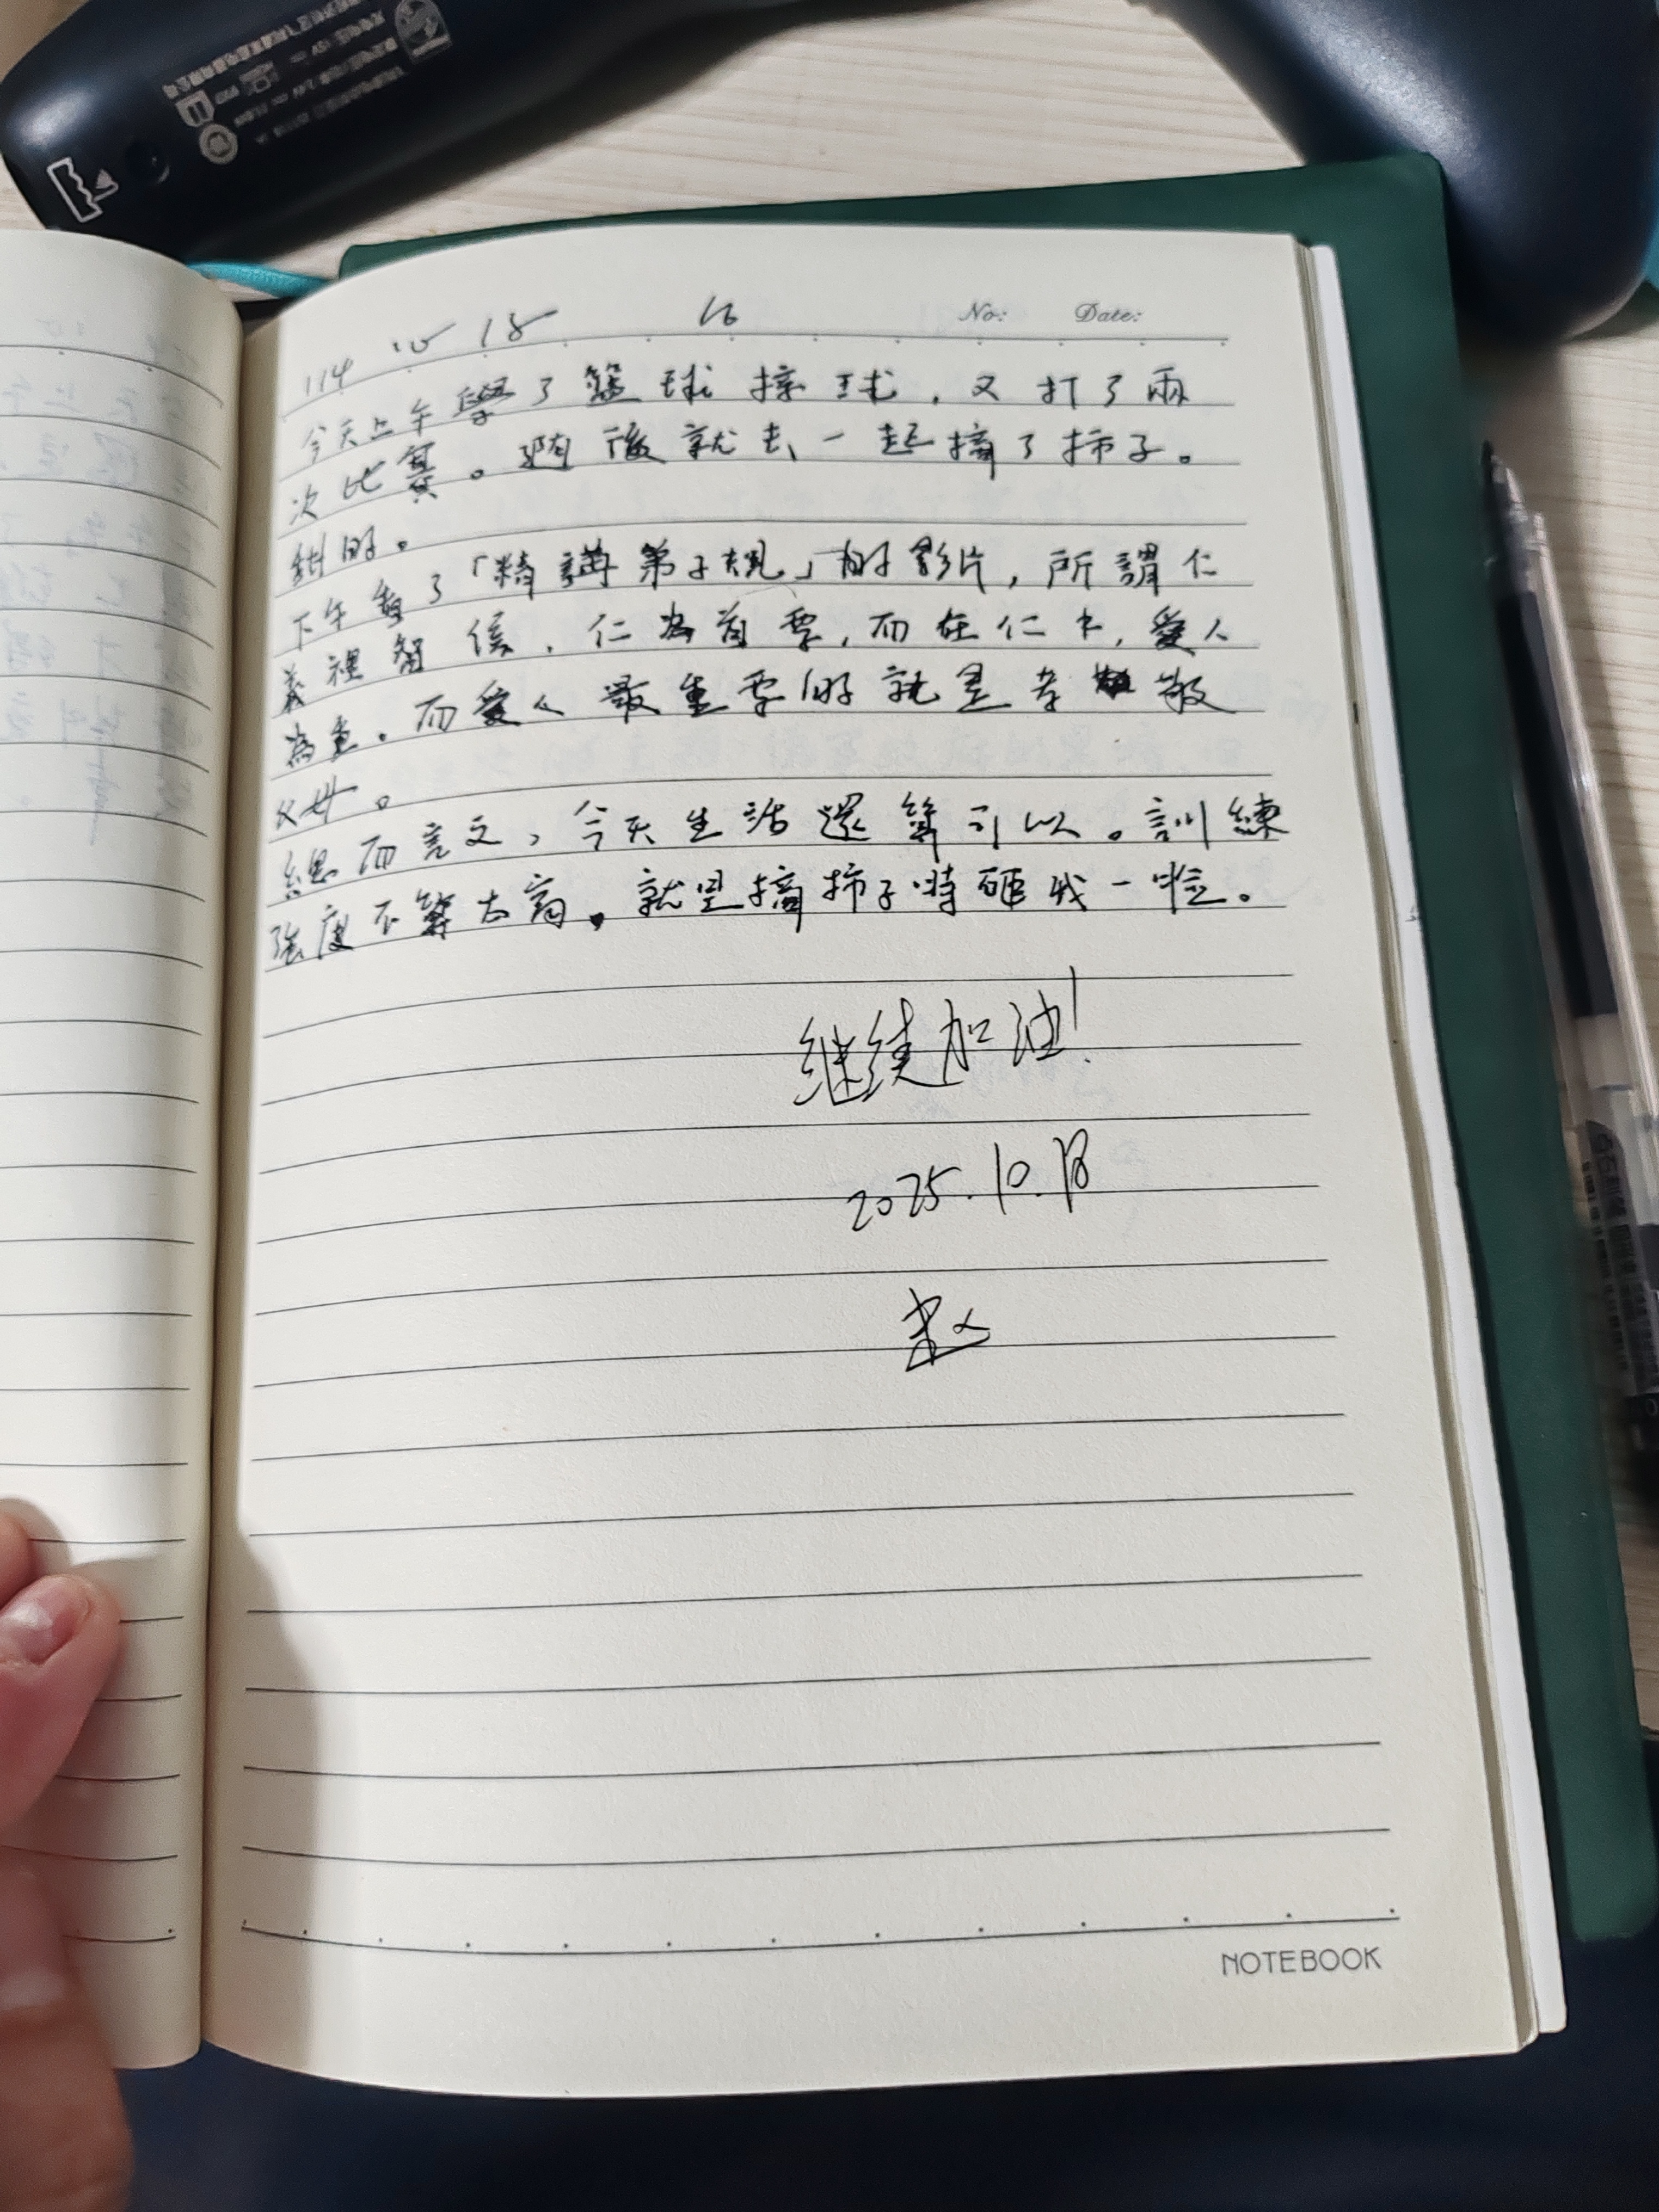 114 10 18 16
No: Date:
今天上午學了籃球接球，又打了兩
次比賽。隨後就去一起摘了柿子。
甜的。
下午看了「精講弟子規」的影片，所謂仁
義禮智信，仁為首要，而在仁中，愛人
為重。而愛人最重要的就是孝敬
父母。
總而言之，今天生活還算可以。訓練
強度不算太高。就是摘柿子時砸我一臉。
继续加油！
2025.10.18
赵
NOTEBOOK